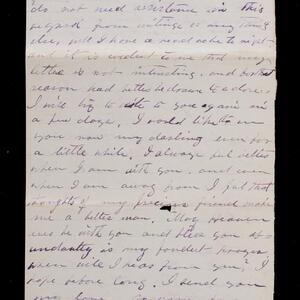 do not need assistance in this
regard from writings or any thing
else, yet I have a headache to-night
and it is evident to me that my
letter is not interesting, and for that
reason had better be drawn to a close.
I will try to write to you again in
a few days. I would like to see
you now my darling even for
a little while. I always feel better
when I am with you, and even
when I am away from you I feel that
thoughts of my precious friend make
me a better man. May heaven
ever be with you and bless you ab-
undantly is my fondest prayer.
When will I hear from you? I
hope before long. I send you
my love